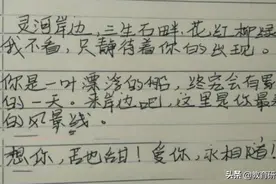 灵河岸边,三生石畔,花红柳绿
我不看,只静待着你的出现。
你是一叶漂浮的船,终究会有累
的一天。来岸边吧,这里是你最
的风景线。
想你,苦也甜!爱你,永相随!
头条 @教育研